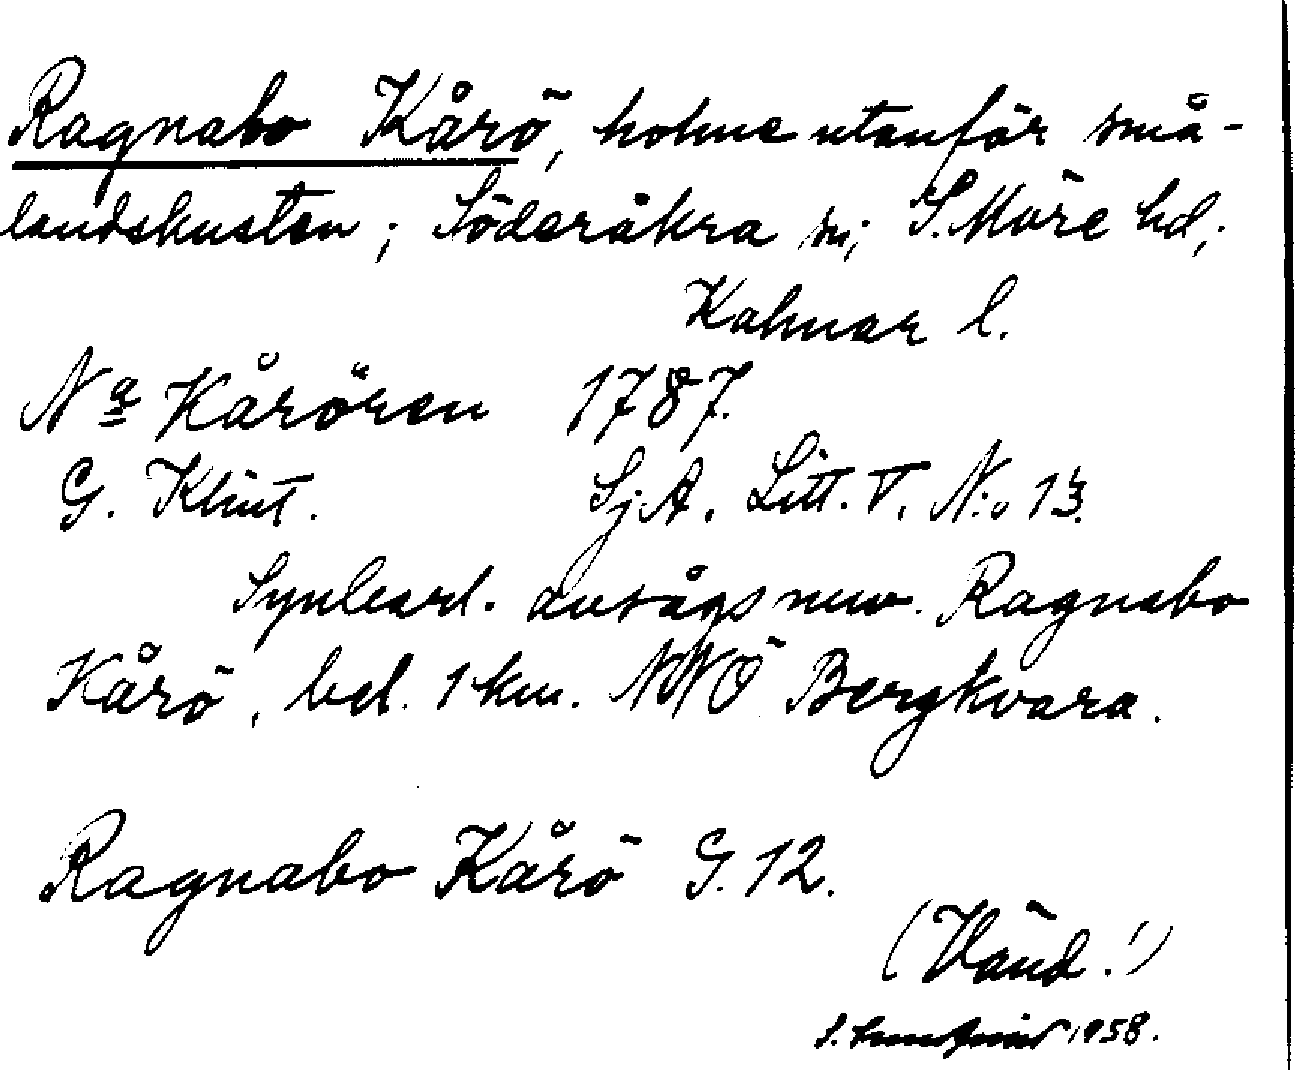 Ragnabo Kårö, holme utanför små-
landskusten; Söderåkra sn; S. Möre hd;
Kalmar l.
Na Kårören 1787.
G. Klint. Sj.A. Litt. V. N:o 13.
Synbarl. avsågs nuv. Ragnabo
Kårö, bel. 1 km. NNÖ Bergkvara.
Ragnabo Kårö G. 12.
(Vänd!)
S. 1958.